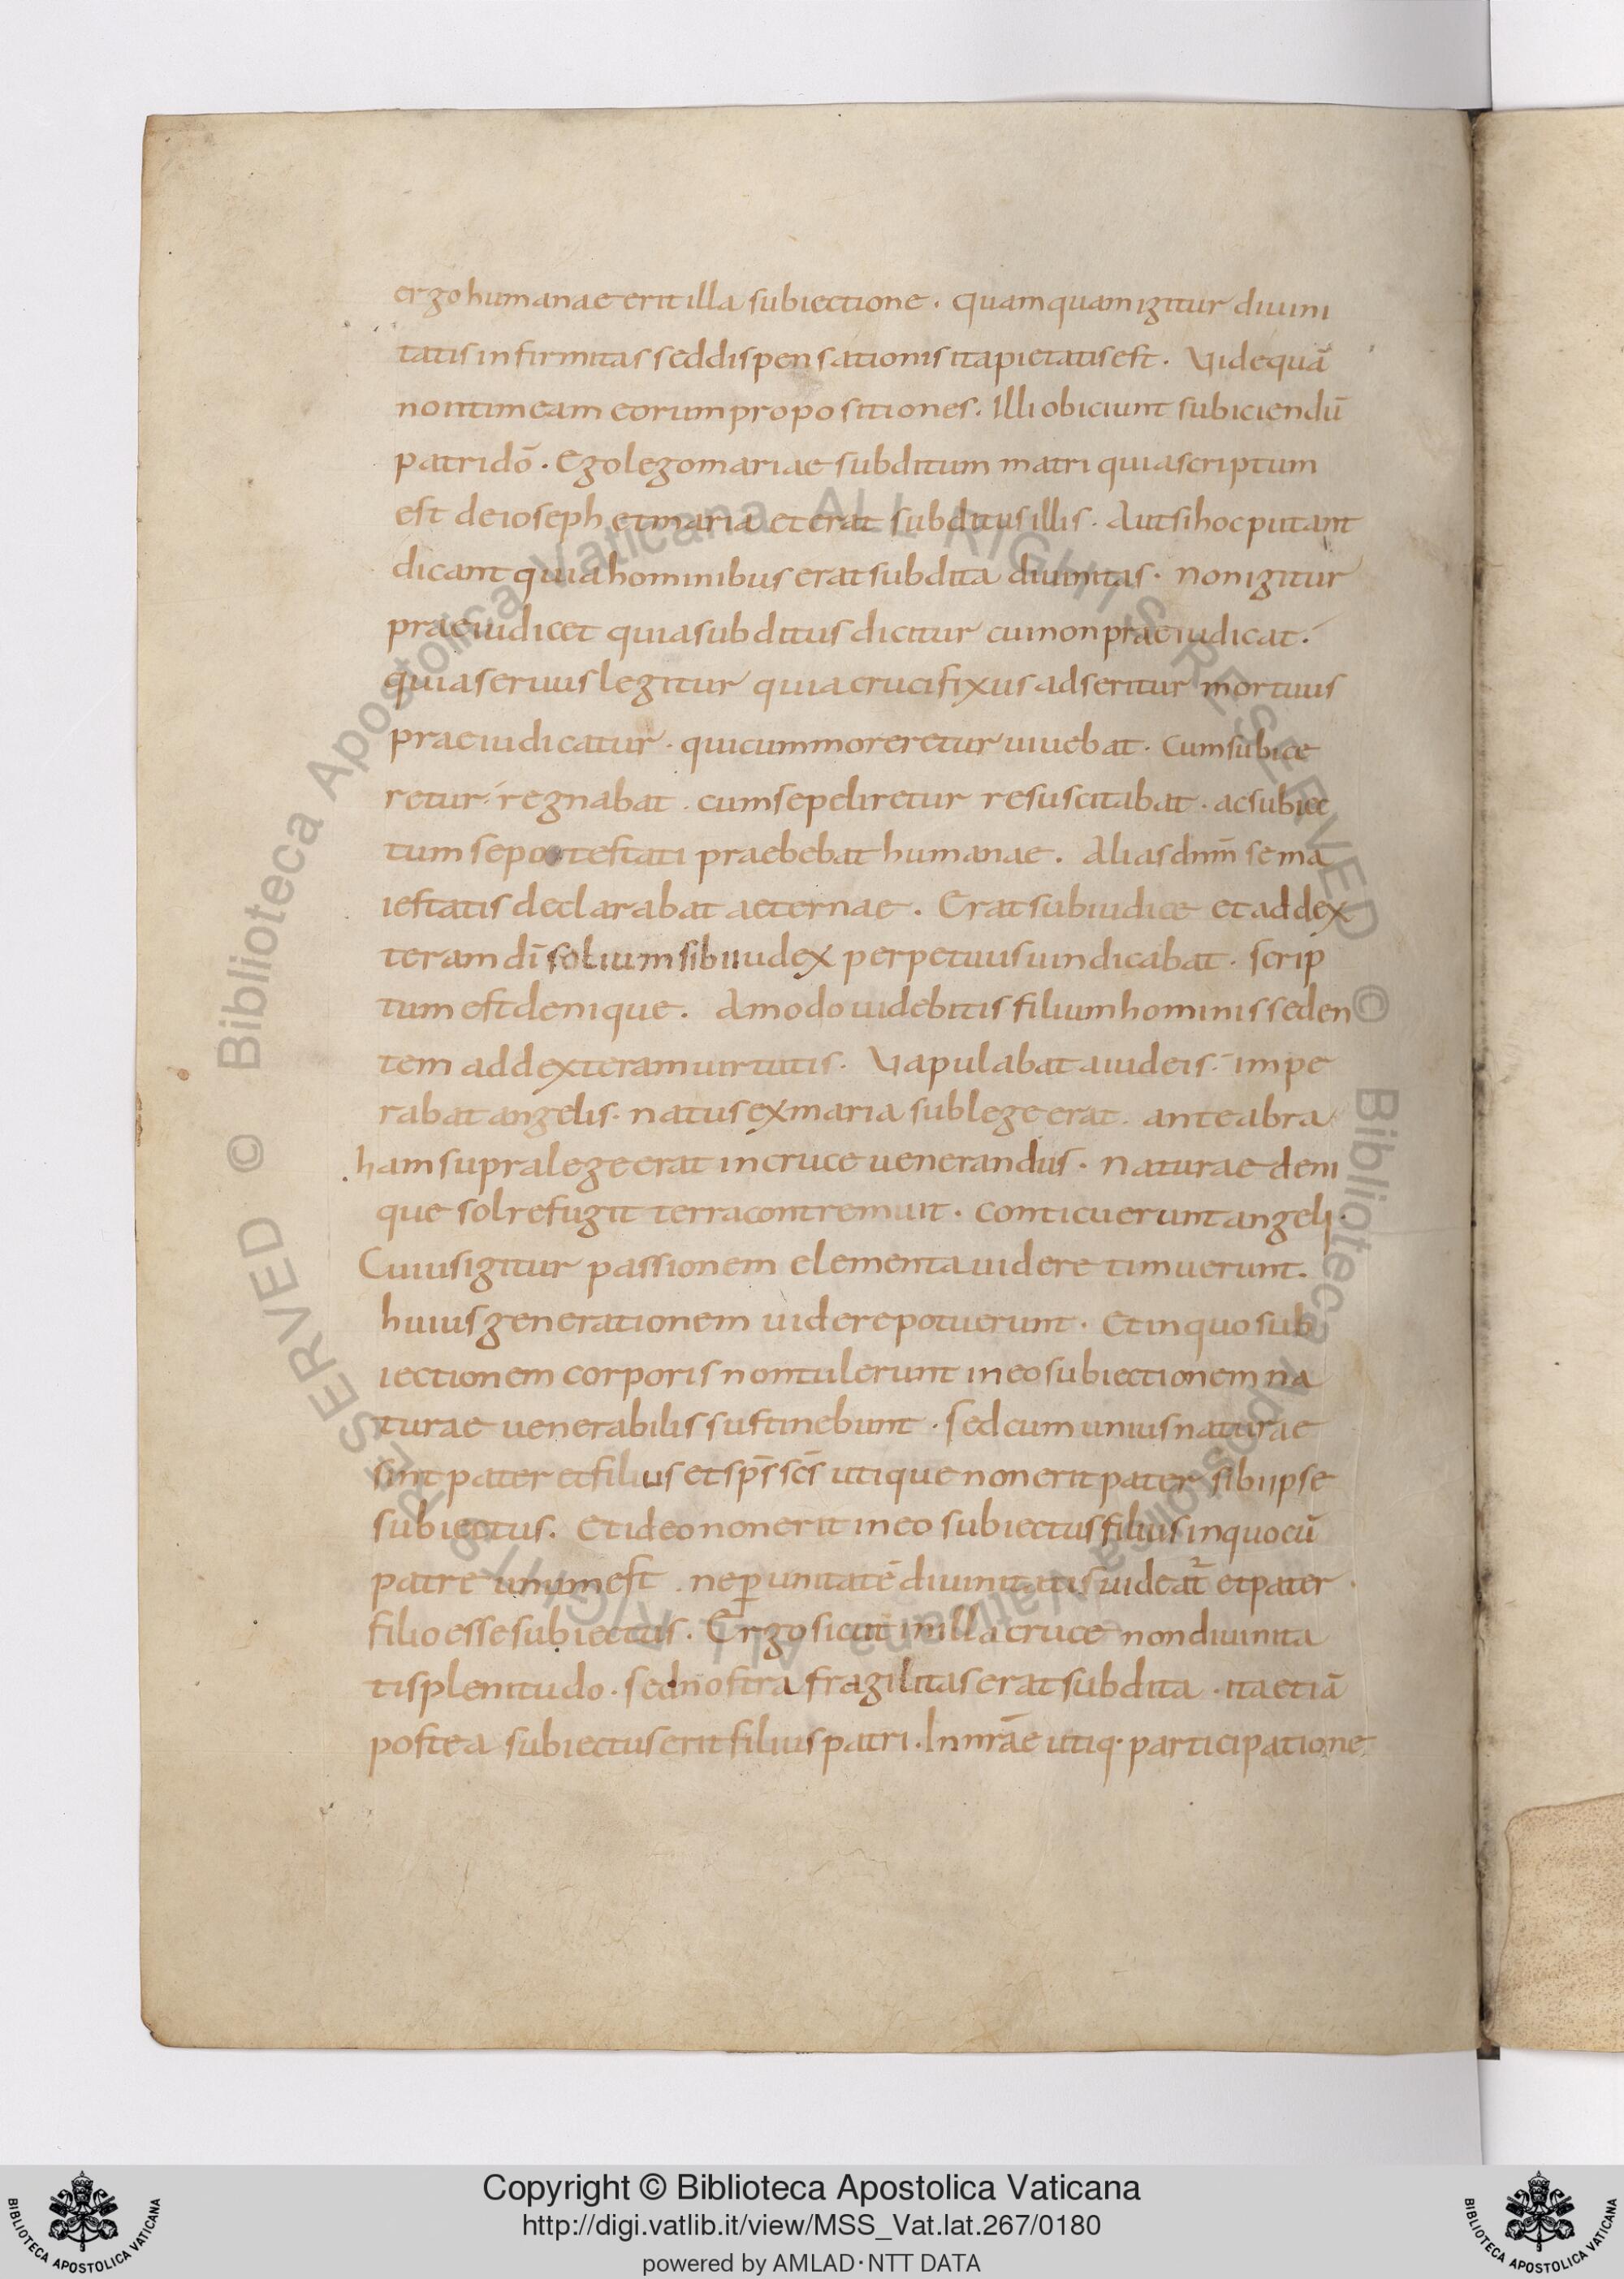 ergo humanae erit illa subiectione. quamquam igitur diuini
tatis infirmitas sed dispensationis ita pietatis est. Vide quā
non timeam eorum propositiones. Illi obiciunt subiciendū
patri dō. Ego lego mariae subditum matri quia scriptum
est de ioseph et maria et erat subditus illis. Aut si hoc putant
dicant quia hominibus erat subdita diuinitas. non igitur
praeiudicet quia subditus dicitur cui non praeiudicat.
quia seruus legitur quia crucifixus adseritur mortuus
praeiudicatur. qui cum moreretur uiuebat. cum subice
retur regnabat. cum sepeliretur resuscitabat. ac subiec
tum se potestati praebebat humanae. Alias dnm̄ se ma
iestatis declarabat aeternae. Erat sub iudice et ad dex
teram dī solium sibi iudex perpetuus uindicabat. scrip
tum est denique. Amodo uidebitis filium hominis seden
tem ad dexteram uirtutis. Vapulabat a iudeis. impe
rabat angelis. natus ex maria sub lege erat. ante abra
ham supra lege erat in cruce uenerandus. Naturae deni
que sol refugit terra contremuit. conticuerunt angeli.
Cuius igitur passionem elementa uidere timuerunt.
huius generationem uidere potuerunt. Et in quo sub
iectionem corporis non tulerunt in eo subiectionem na
turae uenerabilis sustinebunt. sed cum unius naturae
sint pater et filius et sp̄s sc̄s utique non erit pater sibi ipse
subiectus. Et ideo non erit in eo subiectus filius in quo cū
patre unum est. ne ꝑ unitatē diuinitatis uideat᷑ et pater
filio esse subiectus. Ergo sicut in illa cruce non diuinita
tis plenitudo. sed nostra fragilitas erat subdita. ita etiā
postea subiectus erit filius patri. In nrāe utiq· participatione
Copyright © Biblioteca Apostolica Vaticana
http://digi.vatlib.it/view/MSS_Vat.lat.267/0180
powered by AMLAD·NTT DATA
BIBLIOTECA APOSTOLICA VATICANA
BIBLIOTECA APOSTOLICA VATICANA